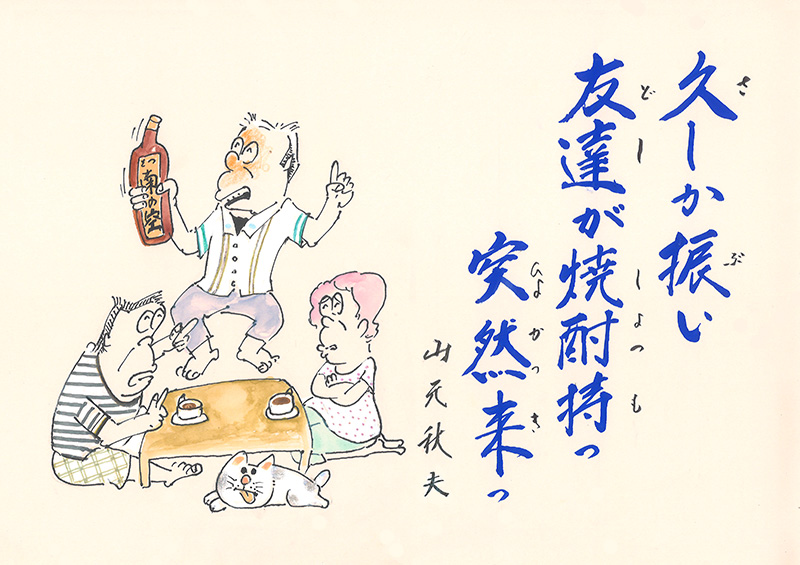 久しか振い
さ
ぶ
友達が焼酎持っ
どし
しょつ
も
突然来っ
ひょかっ
き
山元秋夫
南の空